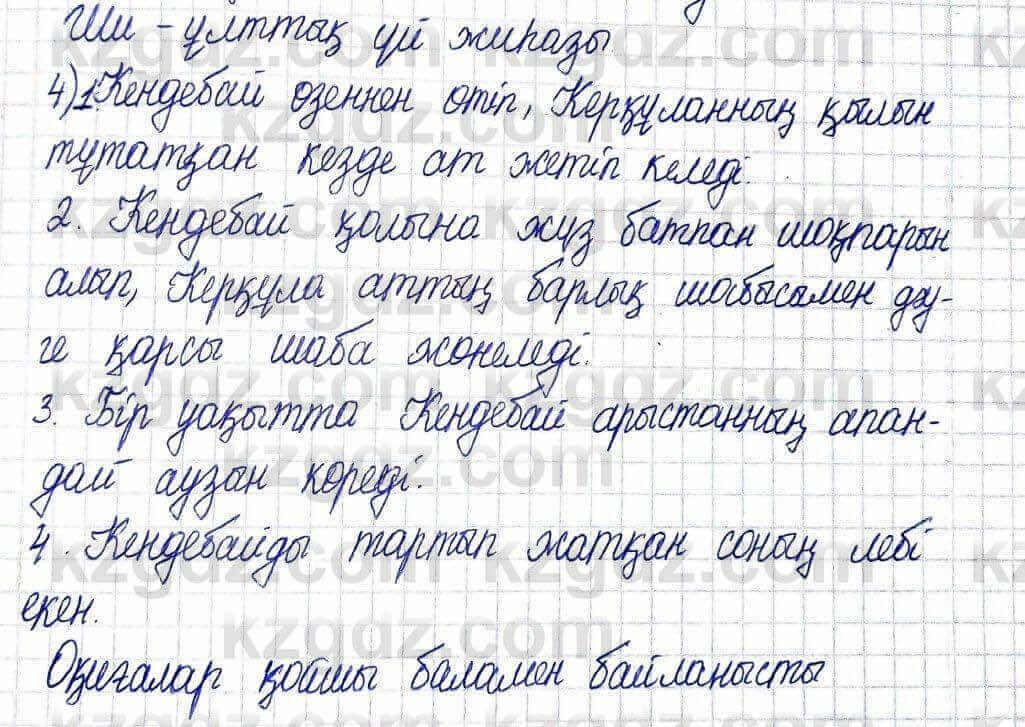 Ши - ұлттық үй жиһазы
4) 1. Кендебай өзеннен өтіп, Керқұланның қылын
тұтатқан кезде ат жетіп келеді.
2. Кендебай қолына жүз батпан шоқпарын
алып, Керқұла аттың барлық шабысымен дәу-
ге қарсы шаба жөнеледі.
3. Бір уақытта Кендебай арыстанның апан-
дай аузын көреді.
4. Кендебайды тартып жатқан соның лебі
екен.
Оқиғалар қойшы баламен байланысты